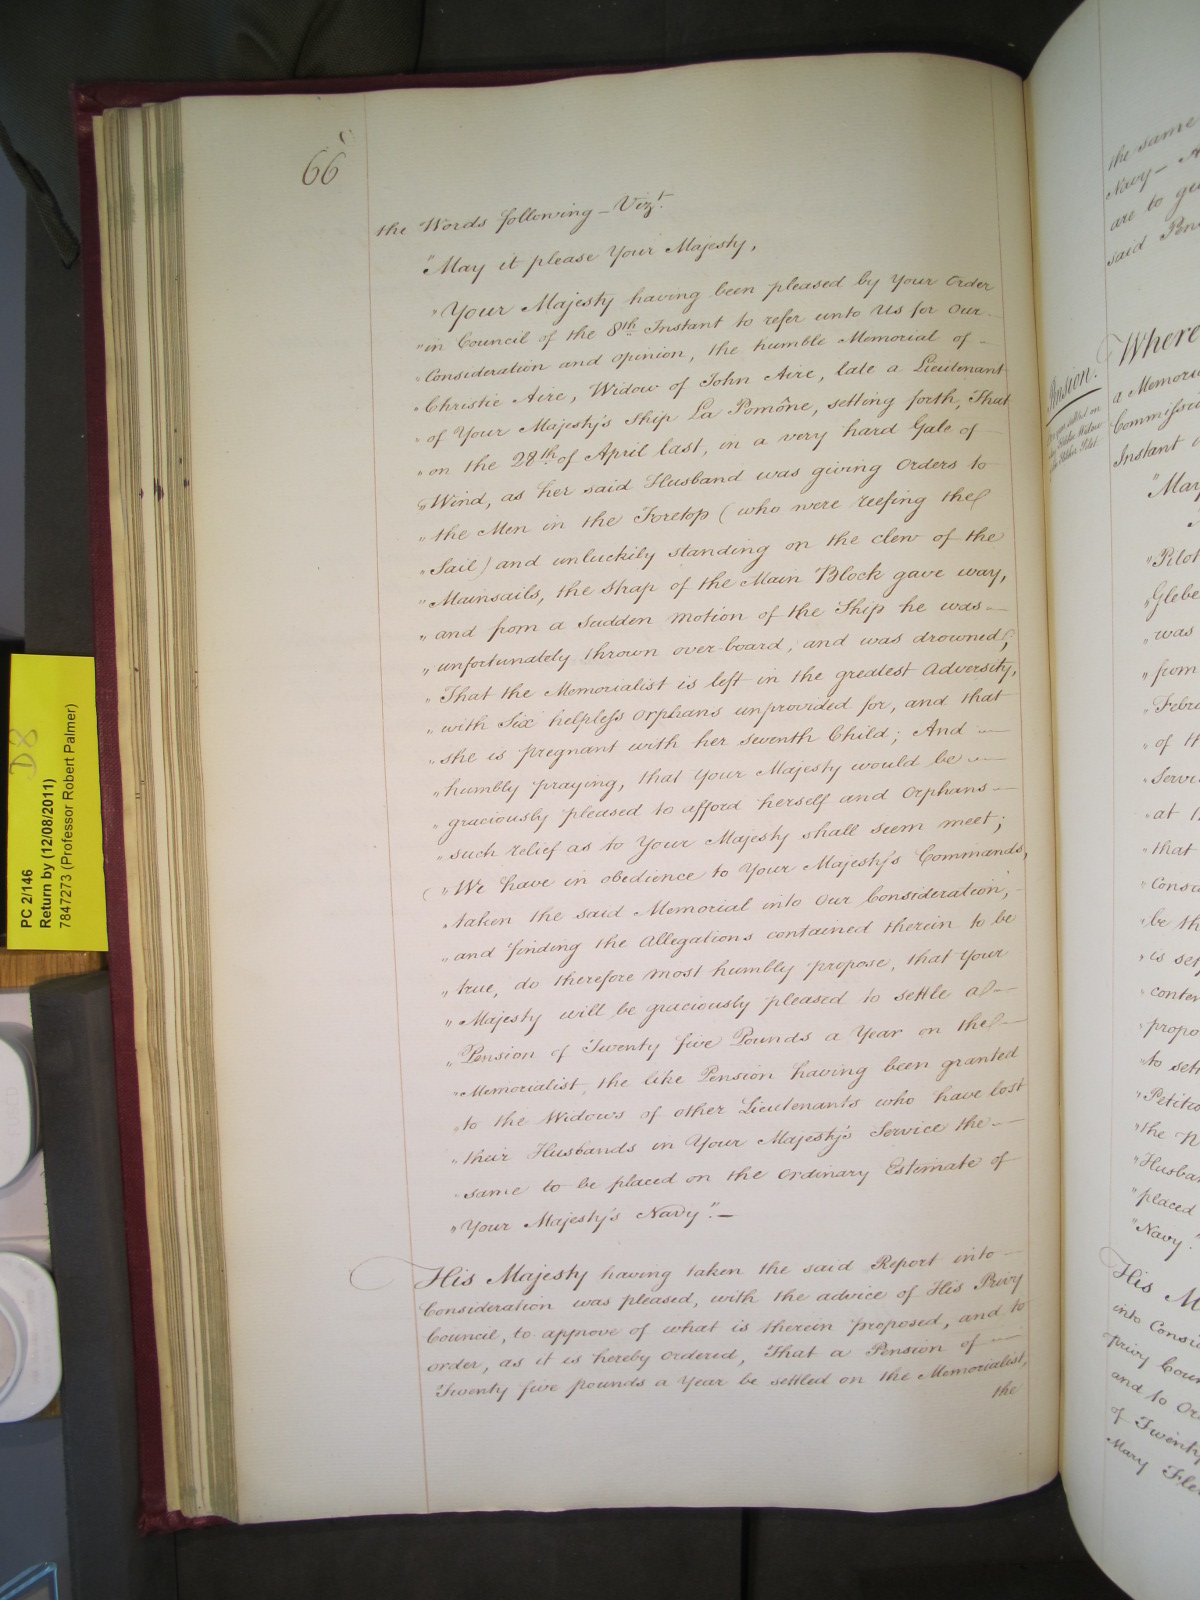 66
the Words following – Vizt.
"May it please Your Majesty,
"Your Majesty having been pleased by Your Order
"in Council of the 8th Instant to refer unto Us for Our
"Consideration and opinion, the humble Memorial of –
"Christie Aire, Widow of John Aire, late a Lieutenant
"of Your Majesty's Ship La Pomône, setting forth, That
"on the 28th of April last, in a very hard Gale of –
"Wind, as her said Husband was giving Orders to
"the Men in the Foretop (who were reefing the
"Sail) and unluckily standing on the clew of the
"Mainsails, the Strap of the Main Block gave way,
"and from a Sudden Motion of the Ship he was –
"unfortunately thrown over-board, and was drowned;
"That the Memorialist is left in the greatest Adversity,
"with Six helpless Orphans unprovided for, and that
"she is pregnant with her seventh Child; And –
"humbly praying, that Your Majesty would be –
"graciously pleased to afford herself and Orphans –
"such relief as to Your Majesty shall seem meet;
"We have in obedience to Your Majesty's Commands,
"taken the said Memorial into Our Consideration, –
"and finding the Allegations contained therein to be
"true, do therefore most humbly propose, that Your
"Majesty will be graciously pleased to settle a –
"Pension of Twenty five Pounds a Year on the –
"Memorialist, the like Pension having been granted
"to the Widows of other Lieutenants who have lost
"their Husbands in Your Majesty's Service the –
"same to be placed on the Ordinary Estimate of
"Your Majesty's Navy". –
His Majesty having taken the said Report into –
Consideration was pleased, with the advice of His Privy
Council, to approve of what is therein proposed, and to
order, as it is hereby Ordered, That a Pension of –
Twenty five pounds a Year be settled on the Memorialist,
the
D8
PC 2/146
Return by (12/08/2011)
7847273 (Professor Robert Palmer)
the same
Navy – 
are to
said
Pension.
Where
a Memoria
Commissi
Instant
"Mary
"Pilot
"Glebe
"was
"from
"Febru
"of
"Servi
"at
"that
"Consi
"be th
"is set
"conten
"propo
"to sett
"Petitio
"the N
"Husban
"placed
"Navy."
His M
into Consi
privy Coun
and to Or
of Twenty
Mary Fle